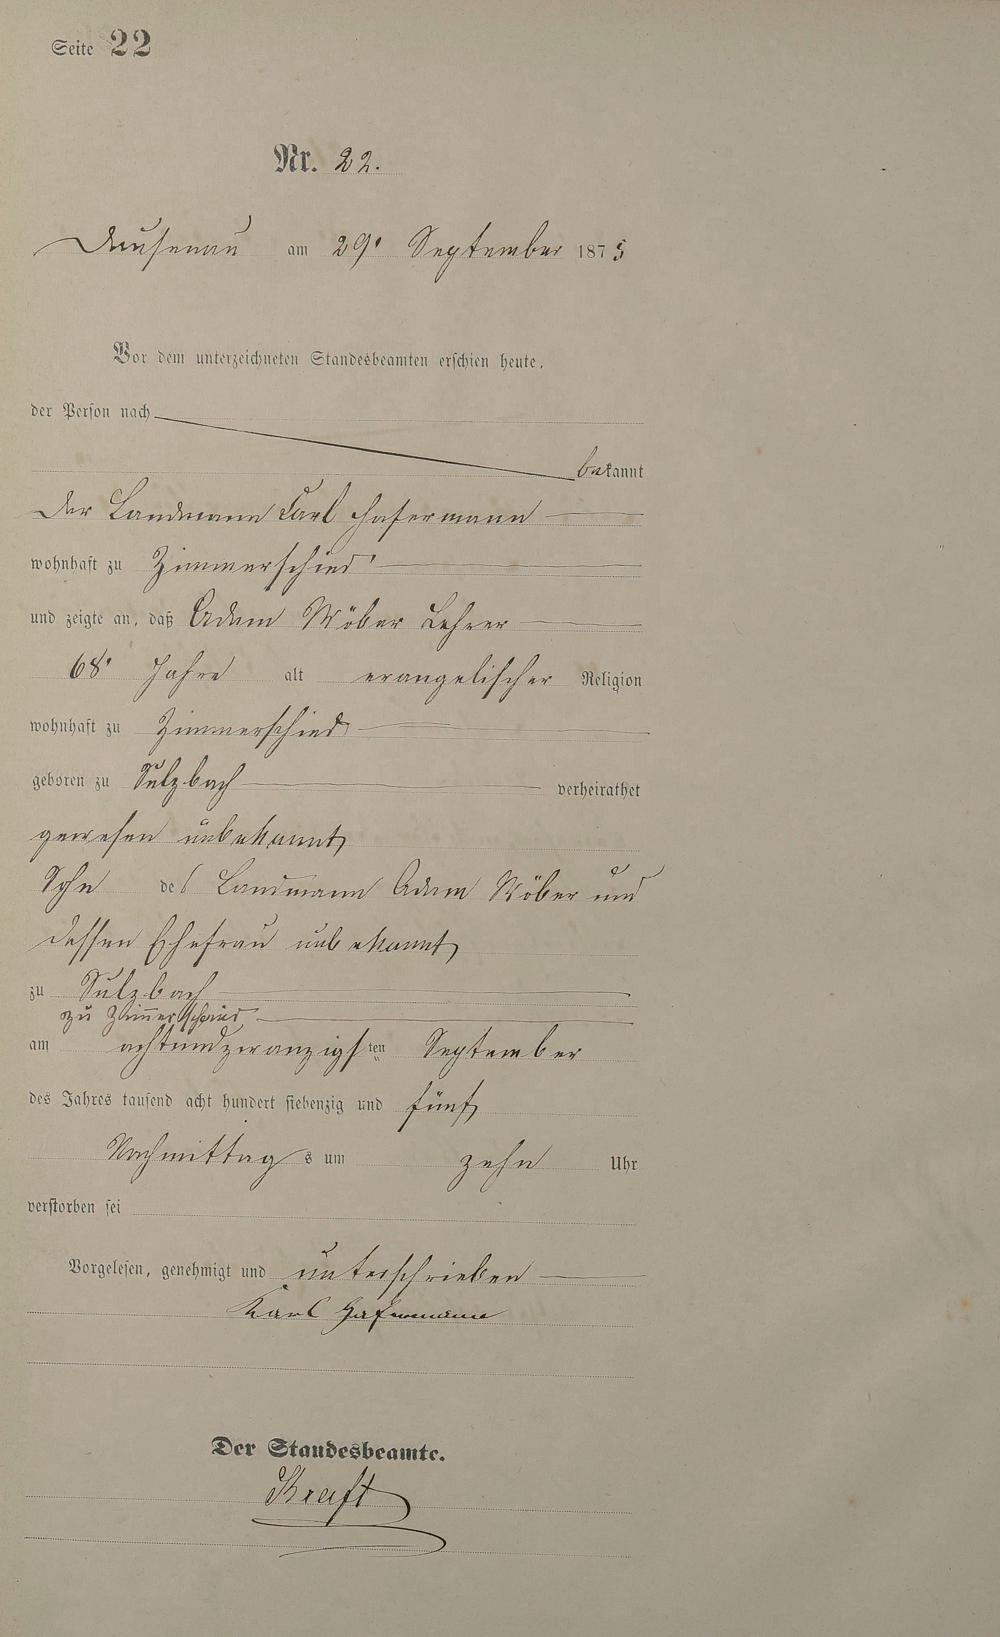 Seite 22
Nr. 22.
Dausenau am 29. September 1875
Vor dem unterzeichneten Standesbeamten erschien heute,
der Person nach
bekannt
der Landmann Carl Hafermann
wohnhaft zu Zimmerschied
und zeigte an, daß Adam Wöber Lehrer
68 Jahre alt evangelischer Religion
wohnhaft zu Zimmerschied
geboren zu Sulzbach verheirathet
gewesen unbekannt
Sohn des Landmann Adam Wöber und
dessen Ehefrau unbekannt
zu Sulzbach
zu Zim̅erschied
am achtundzwanzigsten September
des Jahres tausend acht hundert siebenzig und fünf
Nachmittags um zehn Uhr
verstorben sei
Vorgelesen, genehmigt und unterschrieben
Karl Hafermann
Der Standesbeamte.
Kraft